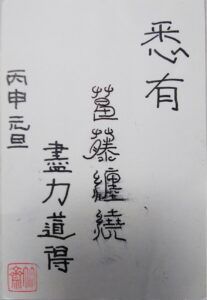 悉有
葛藤纏繞
盡力道得
丙申元旦